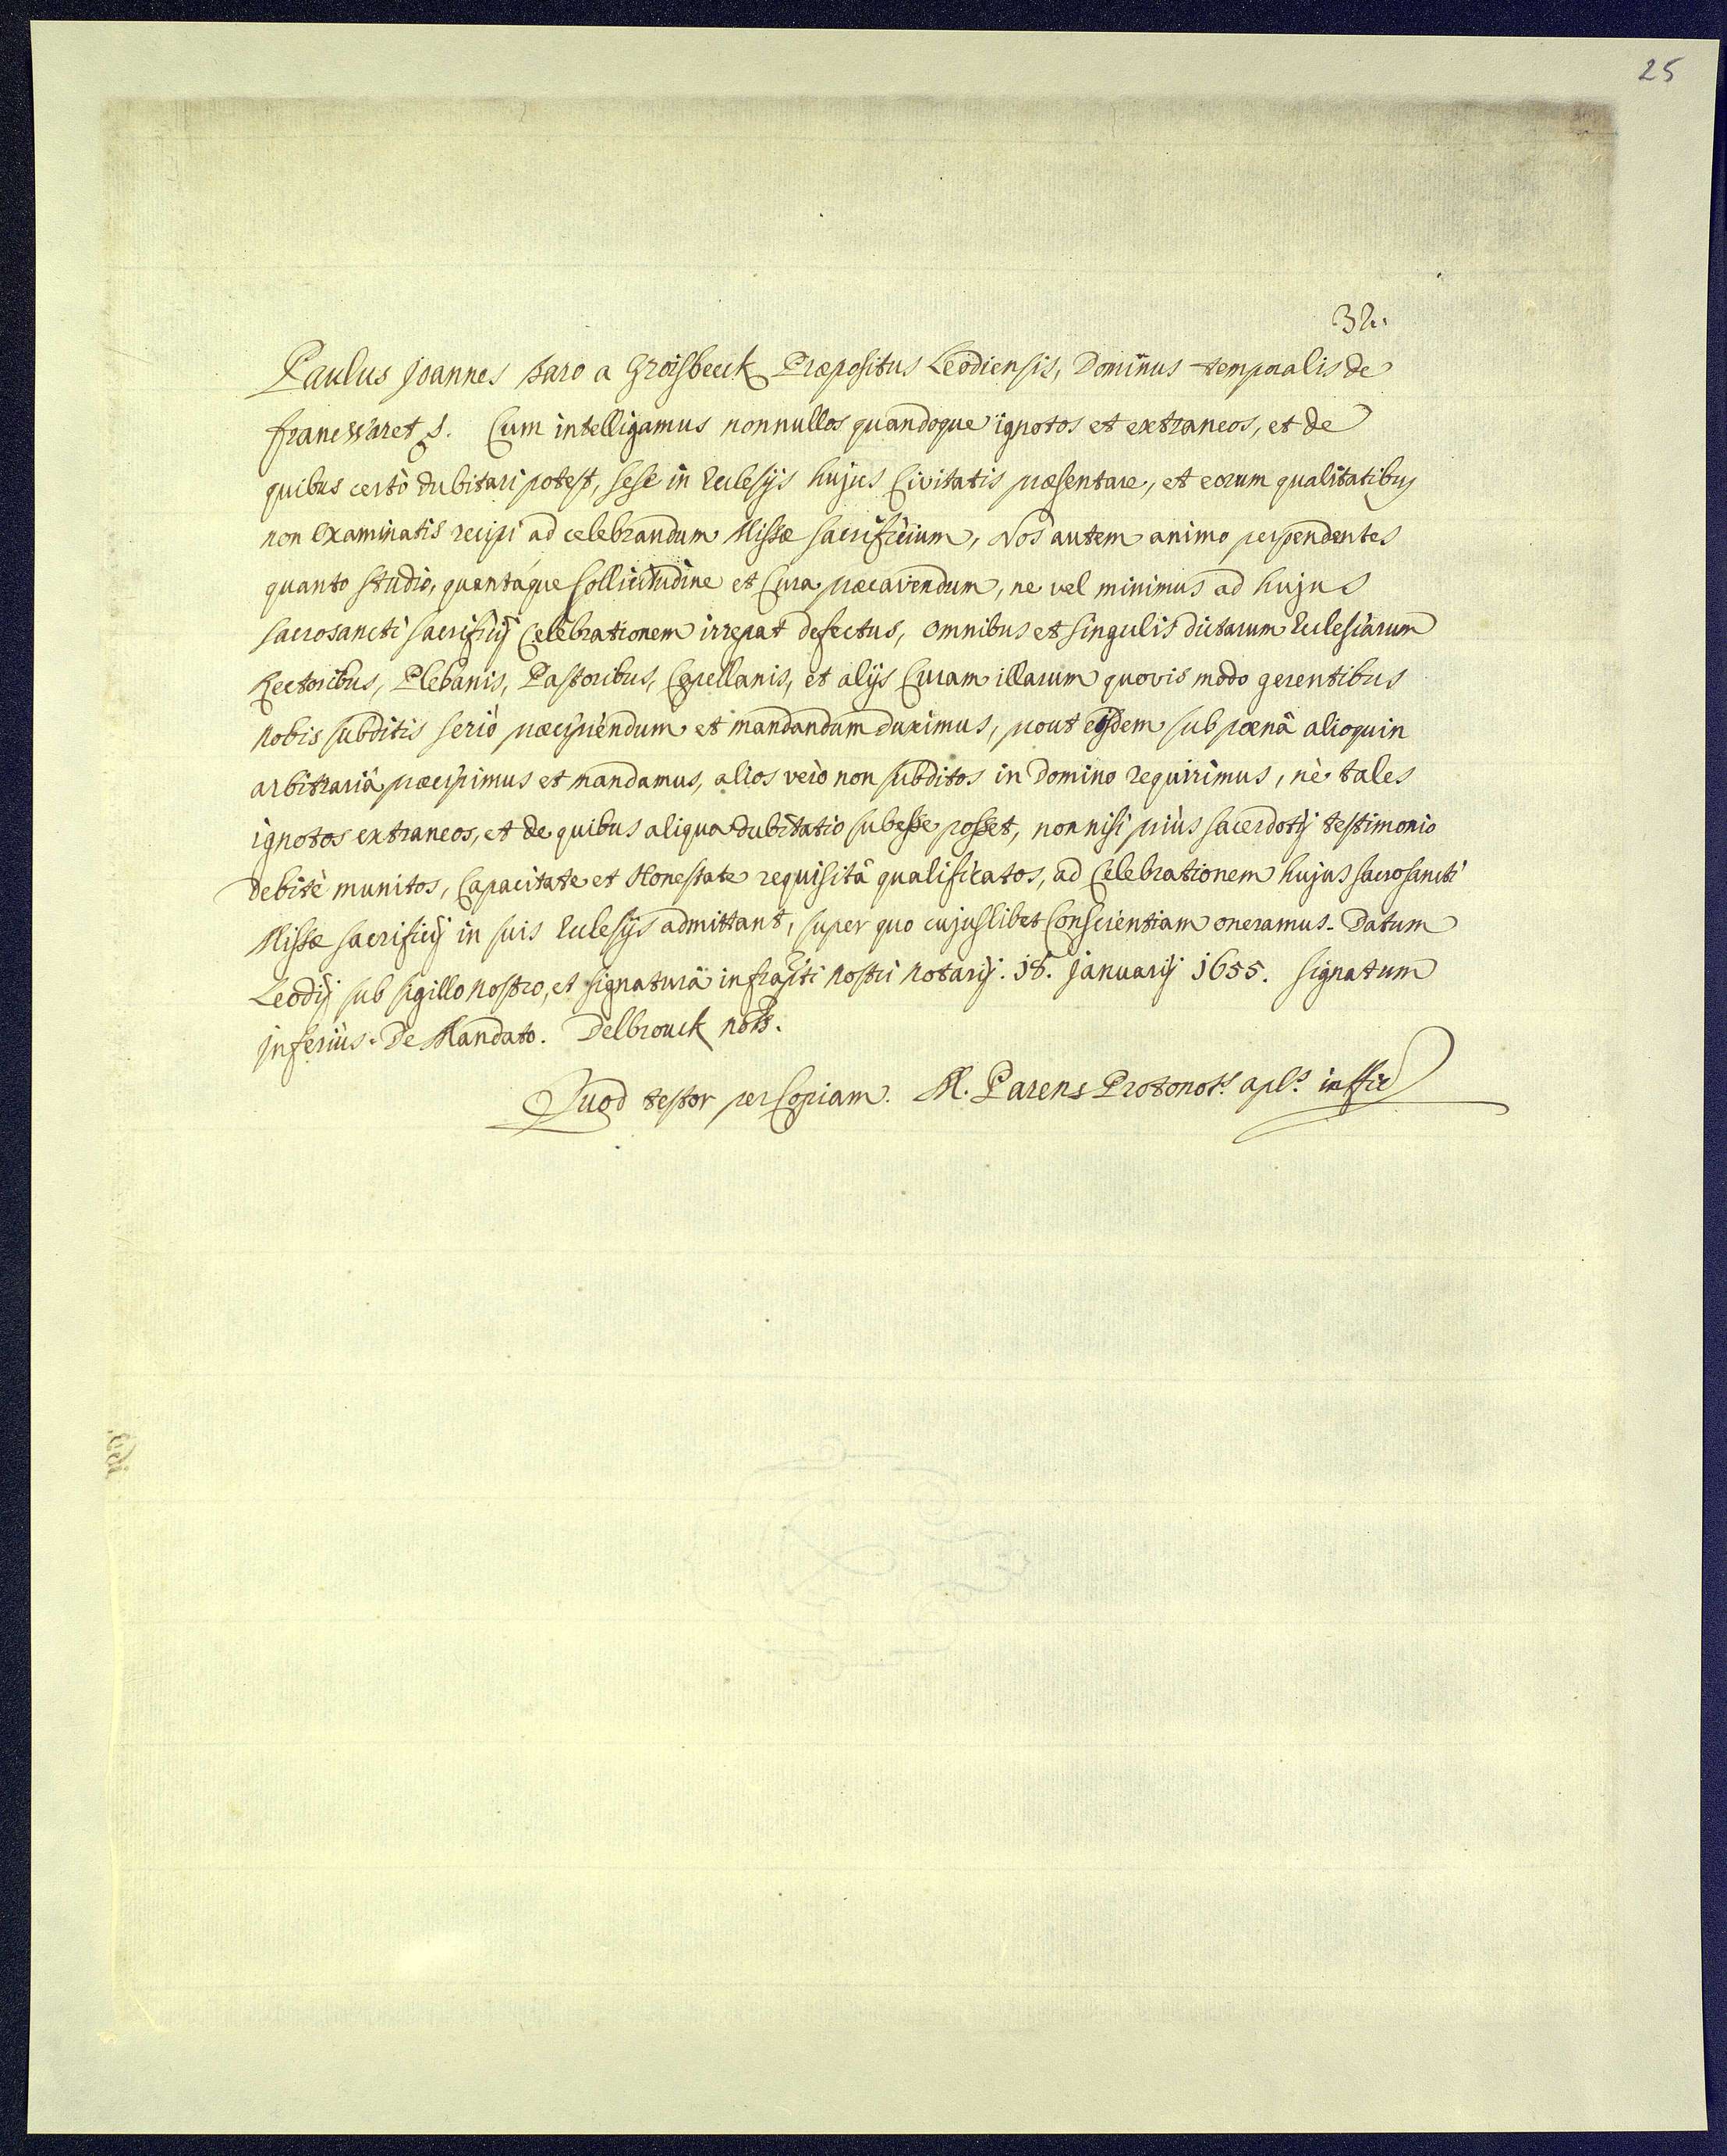 25
32.
Paulus Joannes Baro a Groisbeeck Præpositus Leodiensis, Dominus temporalis de
francWaret S. Cum intelligamus nonnullos quandoque ignotos et extraneos, et de
quibus certò dubitari potest, sese in Ecclesijs hujus Civitatis præsentare, et eorum qualitatibus
non examinatis recipi ad celebrandum Missæ sacrificium, Nos autem animo perpendentes
quanto studio, quantáque sollicitudine et Cura præcavendum, ne vel minimus ad hujus
sacrosancti sacrificij Celebrationem irrepat defectus, omnibus et singulis dictarum Ecclesiarum
Rectoribus, Plebanis, Pastoribus, Capellanis, et alijs Curam illarum quovis modo gerentibus
nobis subditis seriò præcipiendum et mandandum duximus, prout eisdem sub pœnâ alioquin
arbitrariâ præcipimus et mandamus, alios verò non subditos in Domino requirimus, nè tales
ignotos extraneos, et de quibus aliqua dubitatio subesse posset, nonnisi priùs sacerdotij testimonio
debitè munitos, Capacitate et Honestate requisitâ qualificatos, ad Celebrationem hujus sacrosancti
Missæ sacrificij in suis Ecclesijs admittant, super quo cujuslibet Conscientiam oneramus. Datum
Leodij sub sigillo nostro, et signaturâ infrapti nostri notarij. 18. Januarij 1655. signatum
inferiùs. De Mandato. Delbrouck nots.
Quod testor per Copiam. M. Parens Protonots. apls. in ffid